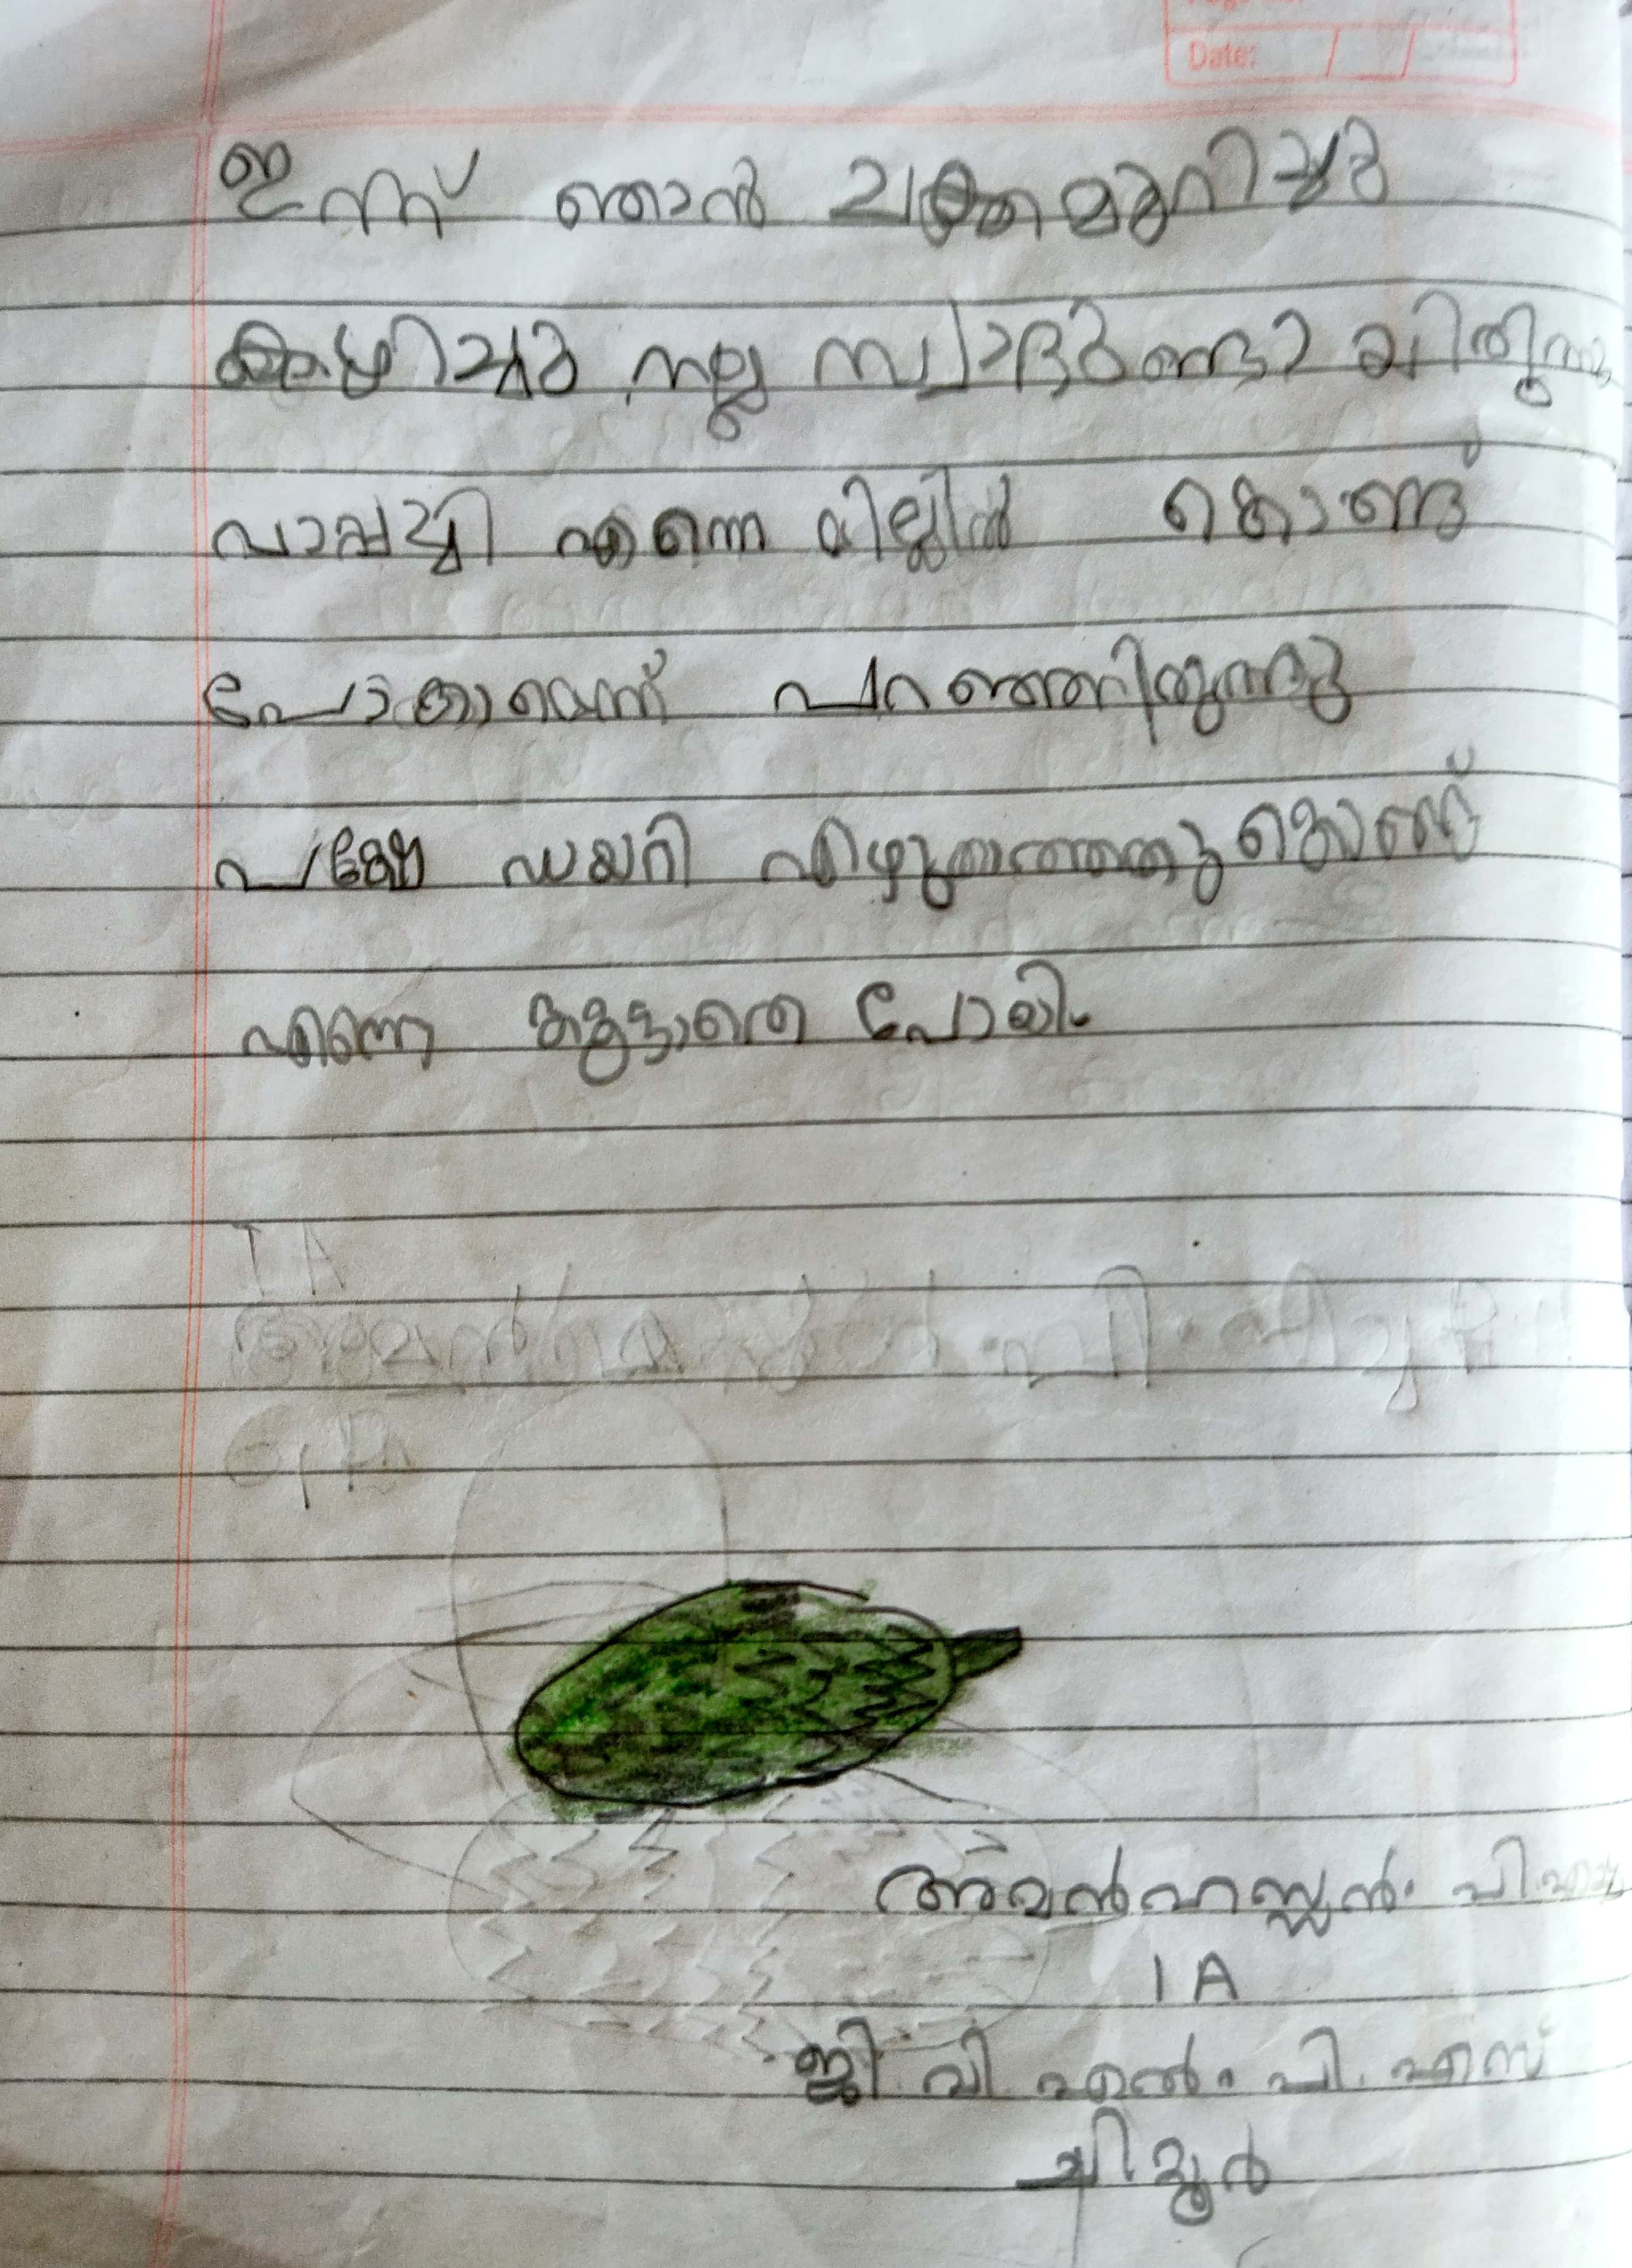 Date:
ഇന്ന് ഞാൻ ചക്ക മുറിച്ചു
കഴിച്ചു നല്ല സ്വാദുണ്ടായിരുന്നു
വാപ്പച്ചി എന്നെ മില്ലിൽ കൊണ്ടു
പോകാമെന്ന് പറഞ്ഞിരുന്നു
പക്ഷേ ഡയറി എഴുതാത്തതുകൊണ്ട്
എന്നെ കൂട്ടാതെ പോയി.
അമൻഹസ്സൻ. പി.
1 A
ജി. വി. എൽ. പി. എസ്
ചിറ്റൂർ